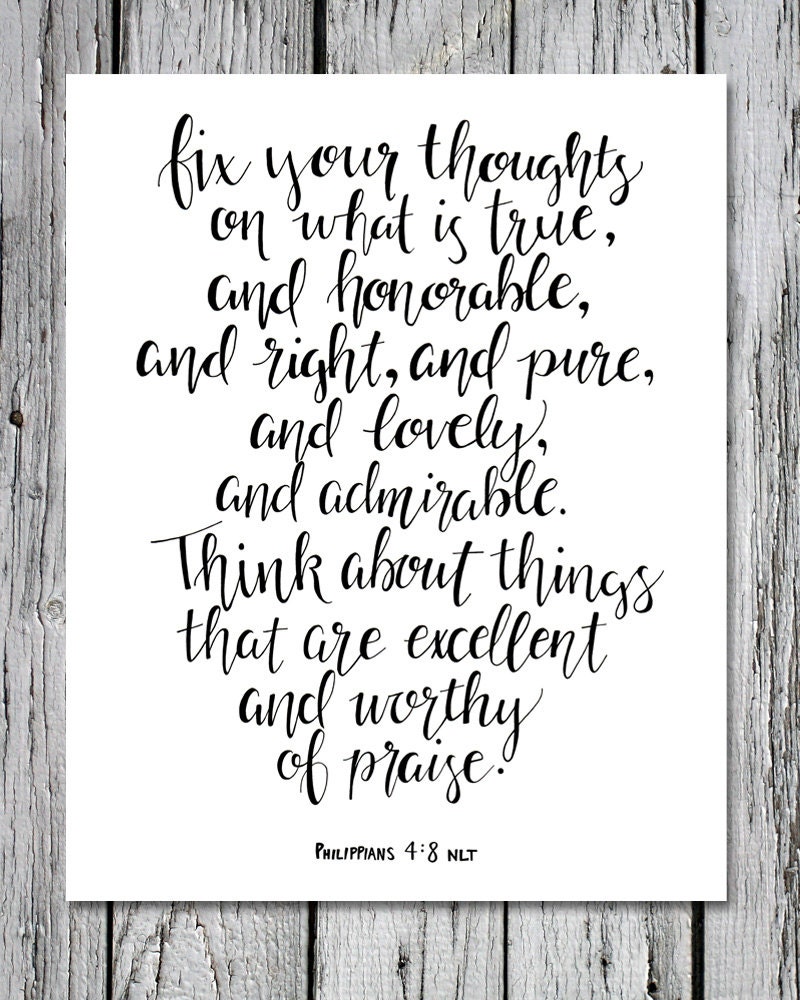 fix your thoughts
on what is true,
and honorable,
and right, and pure,
and lovely,
and admirable.
Think about things
that are excellent
and worthy
of praise.
PHILIPPIANS 4:8 NLT